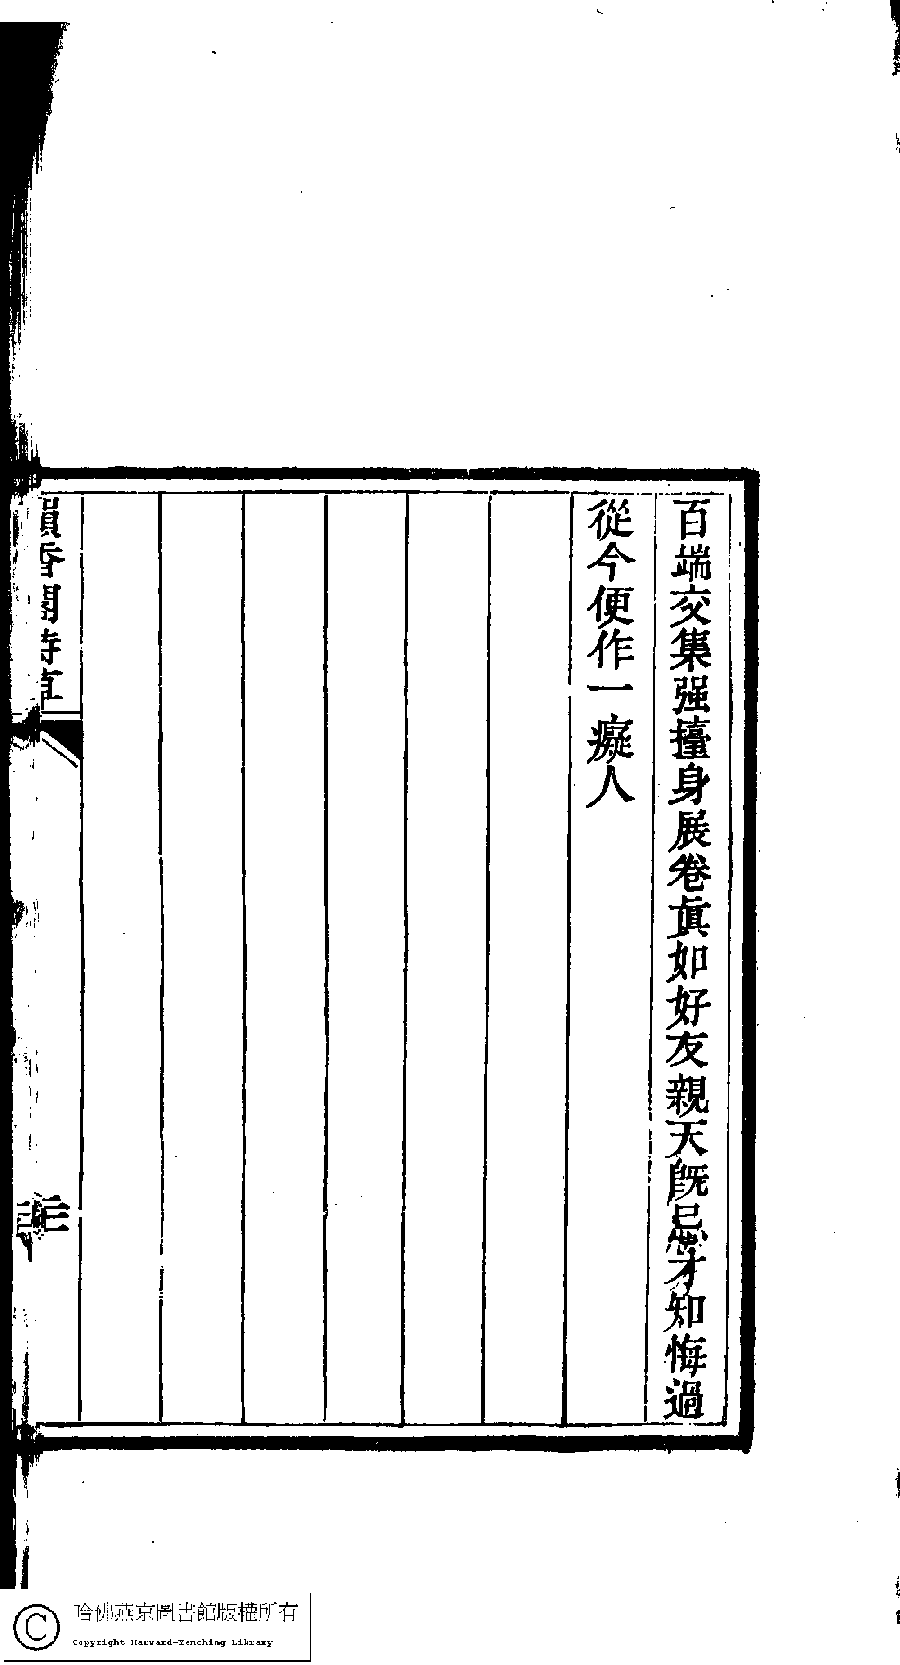 百端交集强擡身展卷眞如好友親天旣忌才知悔過
從今便作一癡人
韻香閣詩草
哈佛燕京圖書館版權所有
Copyright Harvard-Yenching Library